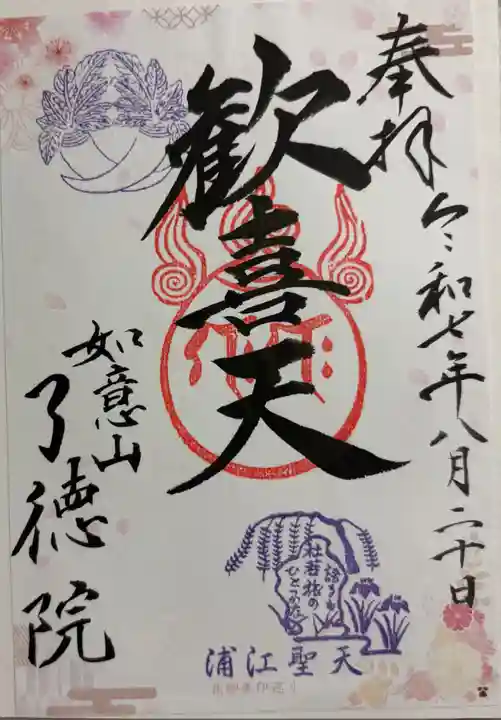 奉拝 令和七年八月二十日
歓喜天
如意山
了徳院
語るも
杜若旅の
ひとつかな
浦江聖天